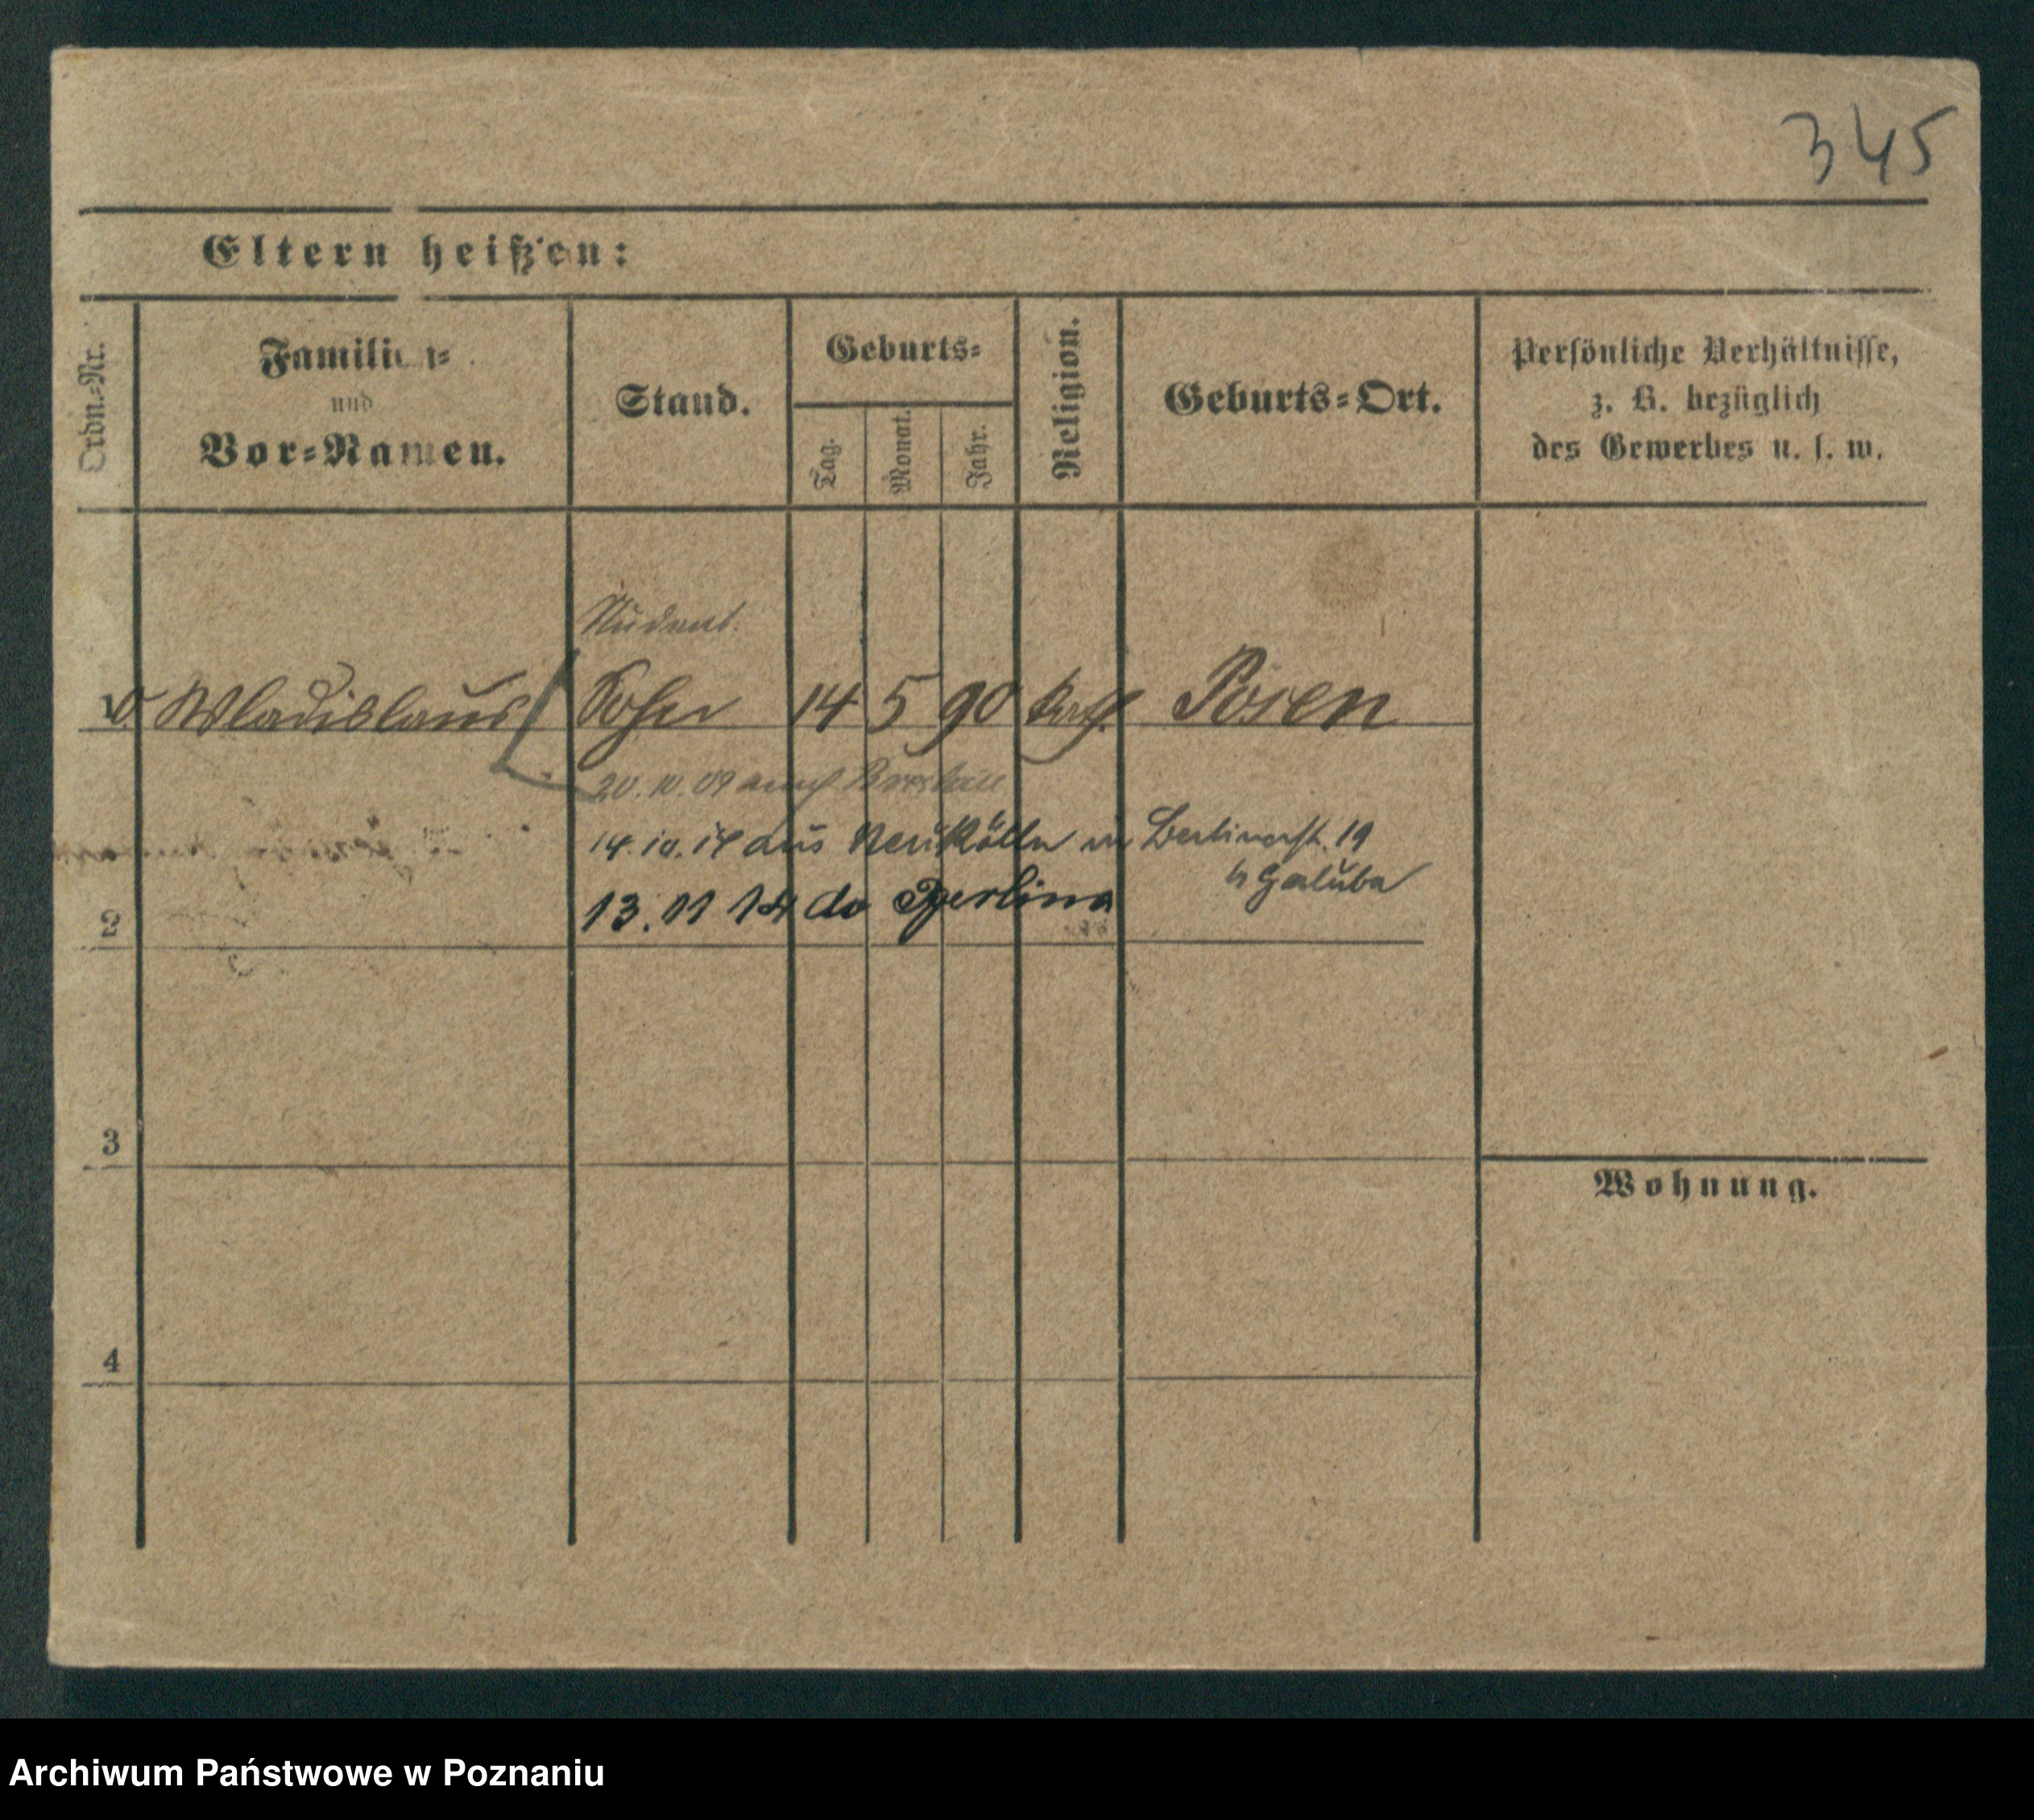 345
Eltern heißen:
Ordn.-Nr.
Familien-
und
Vor-Namen.
Stand.
Geburts-
Tag.
Monat.
Jahr.
Religion.
Geburts-Ort.
Persönliche Verhältnisse,
z. B. bezüglich
des Gewerbes u. s. w.
Student.
1 Wladislaus Sohn 14 5 90 kath. Posen
20.10.09 nach Breslau
14.10.14 aus Neukölln Berlinerst. 19
b Galuba
13.11 14 do Berlina
2
3
Wohnung.
4
Archiwum Państwowe w Poznaniu